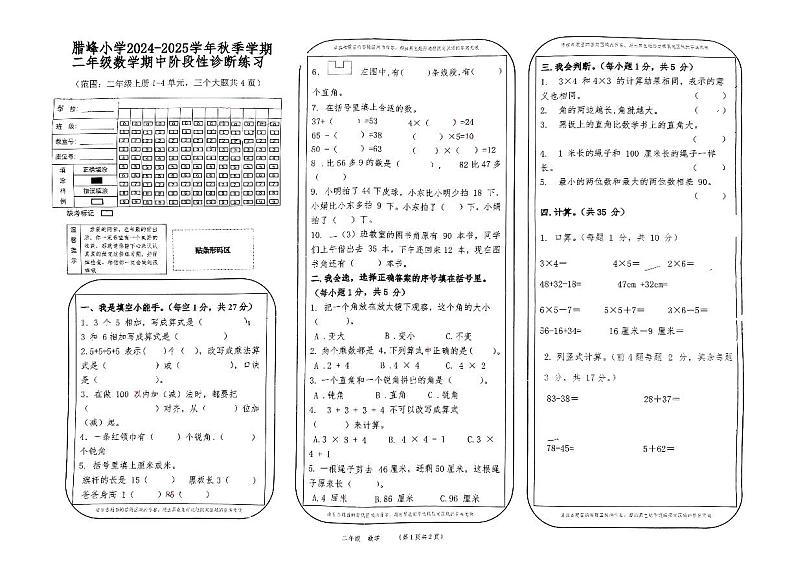 腊峰小学2024-2025学年秋季学期
二年级数学期中阶段性诊断练习
（范围：二年级上册1-4单元，三个大题共4页）
学 校：
班 级：
教室号：
座位号：
填涂样例
正确填涂
错误填涂
缺考标记
温馨提示
贴条形码区
一、我是填空小能手。（每空1分，共27分）
1. 3 个 5 相加，写成算式是（ ）
3 和 6 相加写成算式是（ ）
2.5+5+5+5 表示（ ）个（ ），改写成乘法算
式是（ ）或（ ），口诀
是（ ）。
3. 在做 100 以内加（减）法时，都要把
（ ）对齐，从（ ）位加
（减）起。
4. 一条红领巾有（ ）个锐角.（ ）
个钝角
5. 括号里填上厘米或米。
旗杆的长是 15（ ） 黑板长3（ ）
爸爸身高 1（ ）85（ ）
6. 左图中，有（ ）条线段，有（ ）
个直角。
7. 在括号里填上合适的数。
37+（ ）=53 4×（ ）=24
65 -（ ）=38 （ ）×5=10
50 -（ ）=63 （ ）×（ ）=12
8．比 66 多 9 的数是（ ）， 82 比 47 多
（ ）
9. 小明拍了 44 下皮球，小东比小明少拍 18 下，
小娟比小东多拍 9 下。小东拍了（ ）下，小娟
拍了（ ）下。
10. 二（3）班教室的图书角原有 90 本书，同学
们上午借出去 35 本，下午还回来 12 本，现在图
书角还有（ ）本书。
二. 我会选，选择正确答案的序号填在括号里。
（每小题1分，共5分）
1. 把一个角放在放大镜下观察，这个角的大小
（ ）。
A. 变大 B. 变小 C. 不变
2. 两个乘数都是 4，下列算式中正确的是（ ）。
A. 2 + 4 B. 4 × 4 C. 4 × 2
3. 一个直角和一个锐角拼出的角是（ ）。
A . 钝角 B . 直角 C . 锐角
4. 3 + 3 + 3 + 4 不可以改写成算式
（ ）来计算。
A.3 × 3 + 4 B. 4 × 4 - 1 C.3 ×
4 + 1
5. 一根绳子剪去 46 厘米，还剩 50 厘米，这根绳
子原来长（ ）。
A.4 厘米 B.86 厘米 C.96 厘米
三. 我会判断。（每小题 1 分，共 5 分）
1. 3×4 和 4×3 的计算结果相同，表示的意
义也相同。 （ ）
2. 角的两边越长,角就越大。 （ ）
3. 黑板上的直角比数学书上的直角大。
（ ）
4. 1 米长的绳子和 100 厘米的绳子一样
长。 （ ）
5. 最小的两位数和最大的两位数相差 90。
（ ）
四. 计算。（共 35 分）
1. 口算。（每题 1 分，共 10 分）
3×4= 4×5= 2×6=
48+32-18= 47cm +32cm=
6×5-7= 5×5+7= 3×6-5=
56-16+34= 16 厘米-9 厘米=
2. 列竖式计算。（前 4 题每题 2 分，其余每题
3 分，共 17 分。）
83-38= 28+37=
78-45= 5+62=
二年级 数学 （第1页共2页）